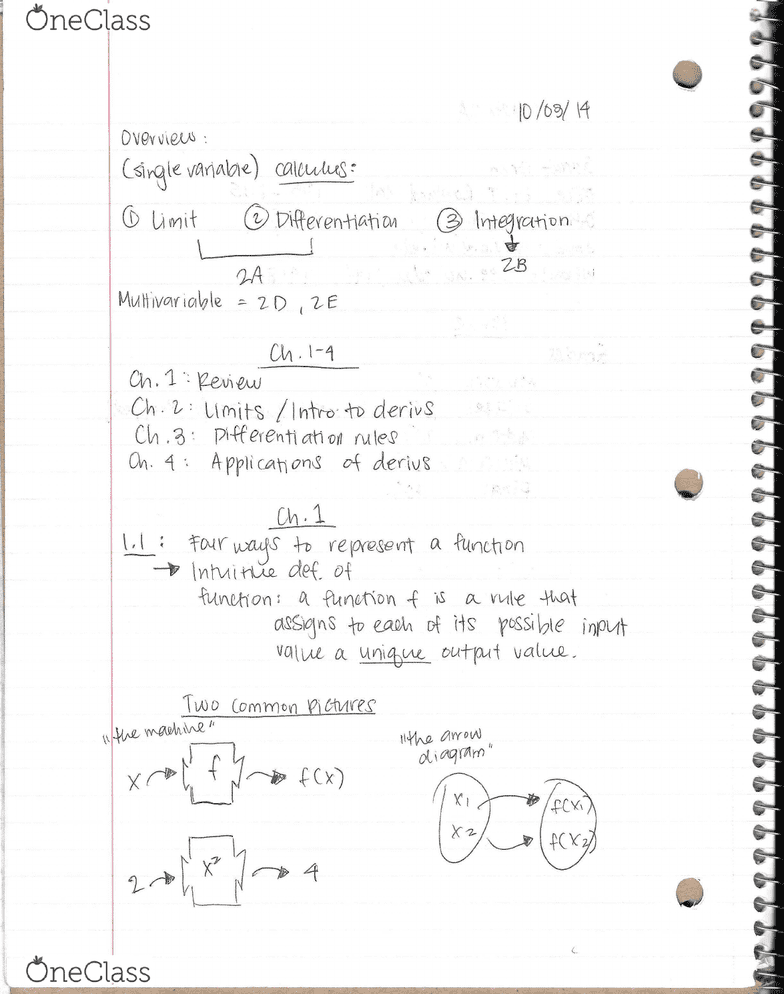 OneClass
10/03/14
Overview:
(single variable) calculus:
① Limit ② Differentiation ③ Integration
2A
2B
Multivariable = 2D, 2E
Ch. 1-4
Ch. 1: Review
Ch. 2: Limits / Intro to derivs
Ch. 3: Differentiation rules
Ch. 4: Applications of derivs
Ch. 1
1.1: Four ways to represent a function
→ Intuitive def. of
function: a function f is a rule that
assigns to each of its possible input
value a unique output value.
Two Common Pictures
"the machine"
"the arrow
diagram"
x → f → f(x)
x1 → f(x1)
x2 → f(x2)
2 → x² → 4
OneClass